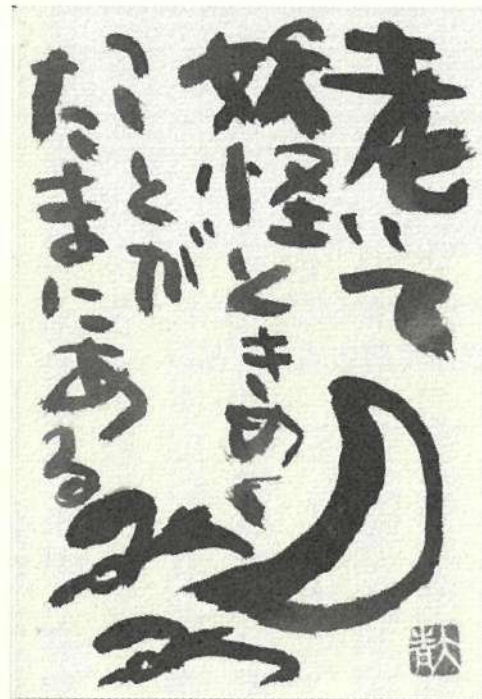 老いて
妖怪ときめく
ことが
たまにある